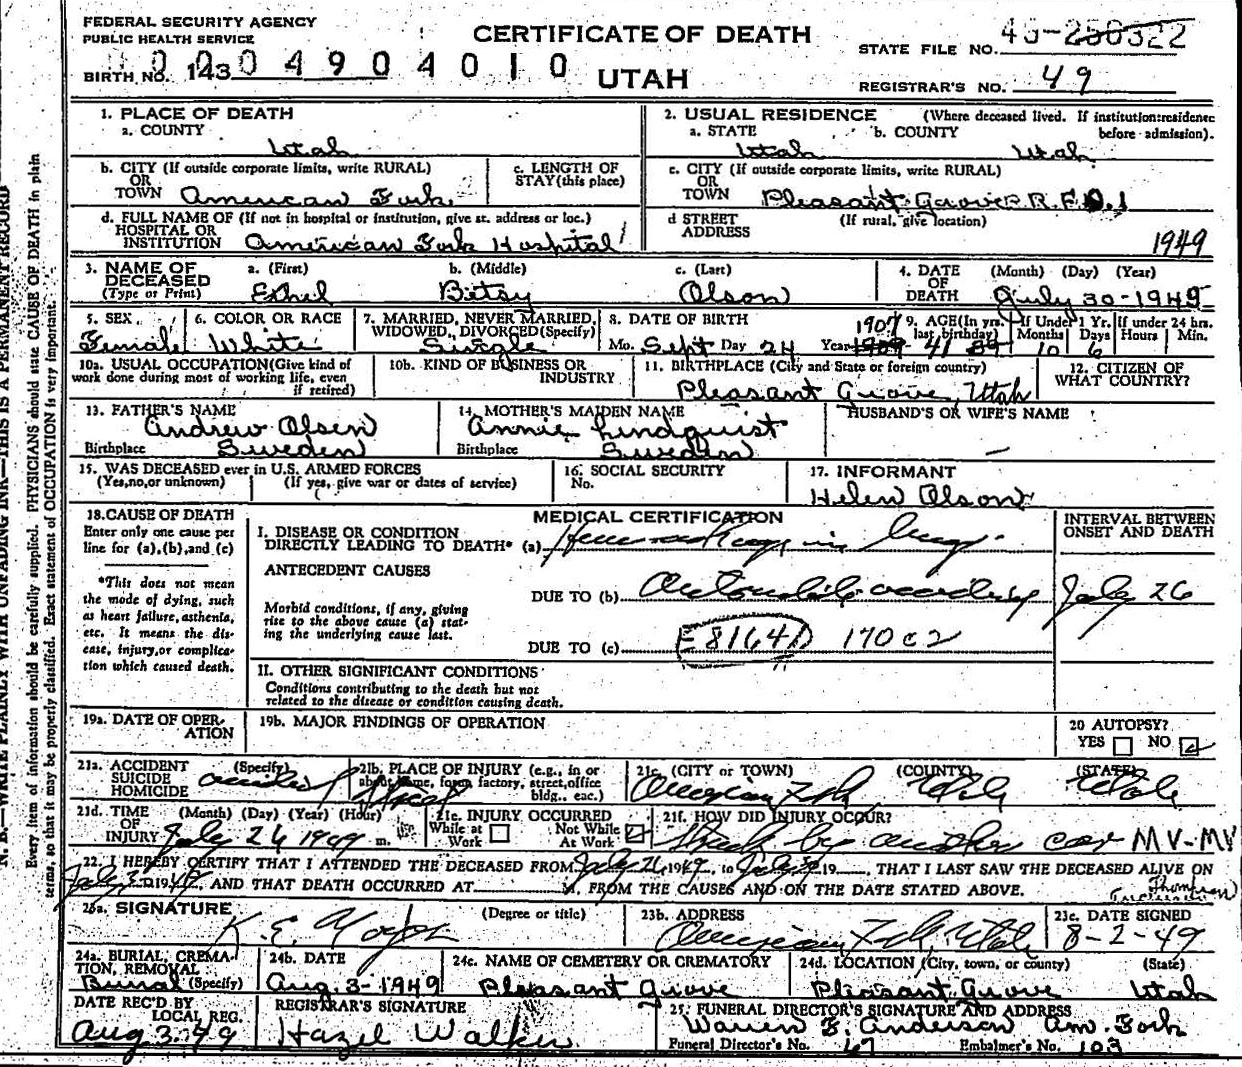 FEDERAL SECURITY AGENCY
PUBLIC HEALTH SERVICE
BIRTH NO. 143 0 4 9 0 4 0 1 0
CERTIFICATE OF DEATH
UTAH
STATE FILE NO. 49-250322
REGISTRAR'S NO. 49
N. B.—WRITE PLAINLY WITH UNFADING INK—THIS IS A PERMANENT RECORD
Every item of information should be carefully supplied. PHYSICIANS should state CAUSE OF DEATH in plain
terms, so that it may be properly classified. Exact statement of OCCUPATION is very important.
1. PLACE OF DEATH
a. COUNTY
Utah
2. USUAL RESIDENCE (Where deceased lived. If institution:residence
before admission).
a. STATE b. COUNTY
Utah Utah
b. CITY (If outside corporate limits, write RURAL)
OR
TOWN American Fork
c. LENGTH OF
STAY (this place)
c. CITY (If outside corporate limits, write RURAL)
OR
TOWN Pleasant Grove R.F.D.1
d. FULL NAME OF (If not in hospital or institution, give st. address or loc.)
HOSPITAL OR
INSTITUTION American Fork Hospital
d STREET (If rural, give location)
ADDRESS
1949
3. NAME OF
DECEASED
(Type or Print)
a. (First) b. (Middle) c. (Last)
Ethel Betsy Olson
4. DATE (Month) (Day) (Year)
OF
DEATH July 30-1949
5. SEX
Female
6. COLOR OR RACE
White
7. MARRIED, NEVER MARRIED,
WIDOWED, DIVORCED (Specify)
Single
8. DATE OF BIRTH
Mo. Sept Day 24 Year 1907 1909
9. AGE (In yrs. last birthday) 41 39
If Under 1 Yr. Months 10 Days 6
If under 24 hrs. Hours Min.
10a. USUAL OCCUPATION (Give kind of
work done during most of working life, even
if retired)
10b. KIND OF BUSINESS OR
INDUSTRY
11. BIRTHPLACE (City and State or foreign country)
Pleasant Grove, Utah
12. CITIZEN OF
WHAT COUNTRY?
13. FATHER'S NAME
Andrew Olsen
Birthplace Sweden
14. MOTHER'S MAIDEN NAME
Annie Lindquist
Birthplace Sweden
HUSBAND'S OR WIFE'S NAME
—
15. WAS DECEASED ever in U.S. ARMED FORCES
(Yes,no,or unknown) (If yes, give war or dates of service)
16. SOCIAL SECURITY
No.
17. INFORMANT
Helen Olson
18. CAUSE OF DEATH
Enter only one cause per
line for (a),(b),and (c)
*This does not mean
the mode of dying, such
as heart failure, asthenia,
etc. It means the dis-
ease, injury, or complica-
tion which caused death.
MEDICAL CERTIFICATION
I. DISEASE OR CONDITION
DIRECTLY LEADING TO DEATH* (a) in lungs
ANTECEDENT CAUSES
DUE TO (b) Automobile accident
Morbid conditions, if any, giving
rise to the above cause (a) stat-
ing the underlying cause last.
DUE TO (c) E8164D 170 c2
INTERVAL BETWEEN
ONSET AND DEATH
July 26
II. OTHER SIGNIFICANT CONDITIONS
Conditions contributing to the death but not
related to the disease or condition causing death.
19a. DATE OF OPER-
ATION
19b. MAJOR FINDINGS OF OPERATION
20 AUTOPSY?
YES NO
21a. ACCIDENT (Specify)
SUICIDE
HOMICIDE
accident
21b. PLACE OF INJURY (e.g., in or
about home, farm, factory, street,office
bldg., eac.)
Street
21c. (CITY or TOWN) (COUNTY) (STATE)
American Fork Utah Utah
21d. TIME (Month) (Day) (Year) (Hour)
OF
INJURY July 26 1949 m.
21e. INJURY OCCURRED
While at Work Not While At Work
21f. HOW DID INJURY OCCUR?
Struck by another car MV-MV
22. I HEREBY CERTIFY THAT I ATTENDED THE DECEASED FROM July 26, 1949, to July 30 19, THAT I LAST SAW THE DECEASED ALIVE ON
July 30 1949, AND THAT DEATH OCCURRED AT M, FROM THE CAUSES AND ON THE DATE STATED ABOVE.
23a. SIGNATURE (Degree or title)
K. E.
23b. ADDRESS
American Fork, Utah
23c. DATE SIGNED
8-2-49
24a. BURIAL, CREMA-
TION, REMOVAL
Burial (Specify)
24b. DATE
Aug. 3-1949
24c. NAME OF CEMETERY OR CREMATORY
Pleasant Grove
24d. LOCATION (City, town, or county) (State)
Pleasant Grove Utah
DATE REC'D BY
LOCAL REG.
Aug 3-49
REGISTRAR'S SIGNATURE
Hazel Walker
25. FUNERAL DIRECTOR'S SIGNATURE AND ADDRESS
Warren F. Anderson Am. Fork
Funeral Director's No. 67 Embalmer's No. 103